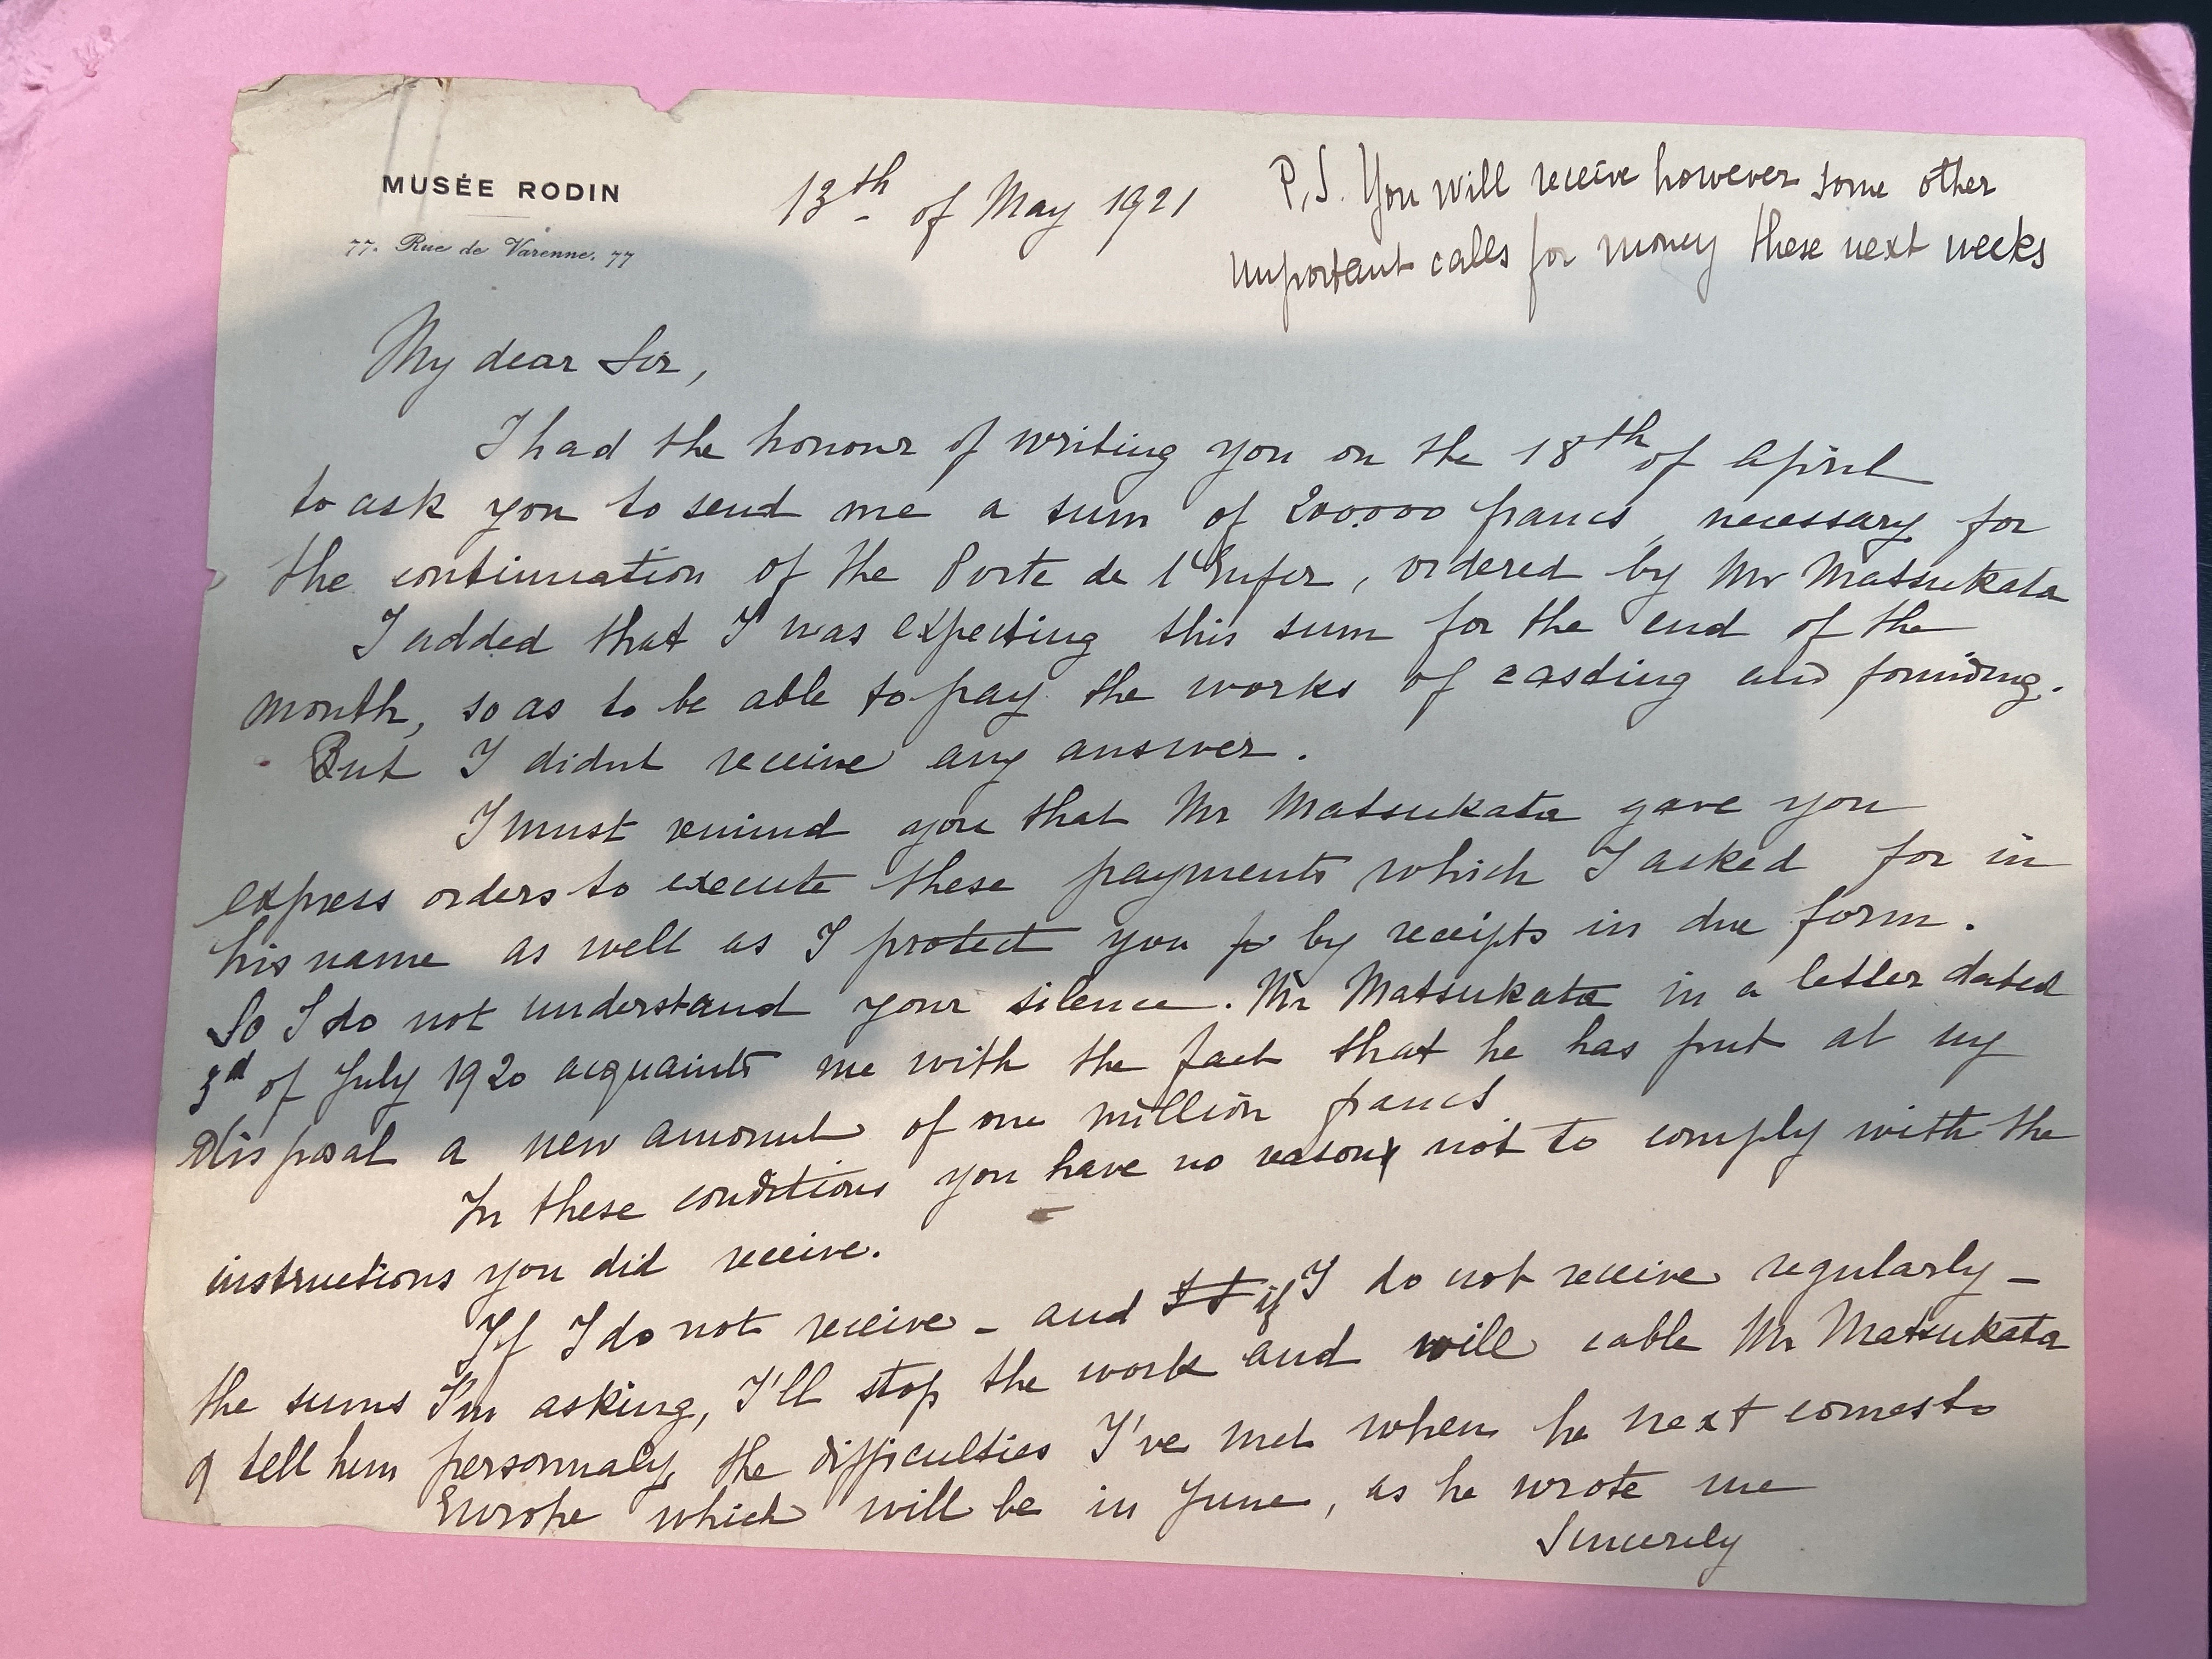 MUSÉE RODIN
77. Rue de Varenne. 77
13th of May 1921
P.S. You will receive however some other
important calls for money these next weeks
My dear Sir,
I had the honour of writing you on the 18th of April
to ask you to send me a sum of 200.000 francs, necessary for
the continuation of the Porte de l'Enfer, ordered by Mr Matsukata
I added that I was expecting this sum for the end of the
month, so as to be able to pay the works of casding and founding.
But I didnt receive any answer.
I must remind you that Mr Matsukata gave you
express orders to execute these payments which I asked for in
his name as well as I protect you by receipts in due form.
So I do not understand your silence. Mr Matsukata in a letter dated
3d of July 1920 acquaints me with the fact that he has put at my
disposal a new amount of one million francs
In these conditions you have no reason not to comply with the
instructions you did receive.
If I do not receive - and if I do not receive regularly -
the sums I'm asking, I'll stop the work and will cable Mr Matsukata
tell him personnaly, the difficulties I've met when he next comes to
Europe which will be in June, as he wrote me
Sincerely